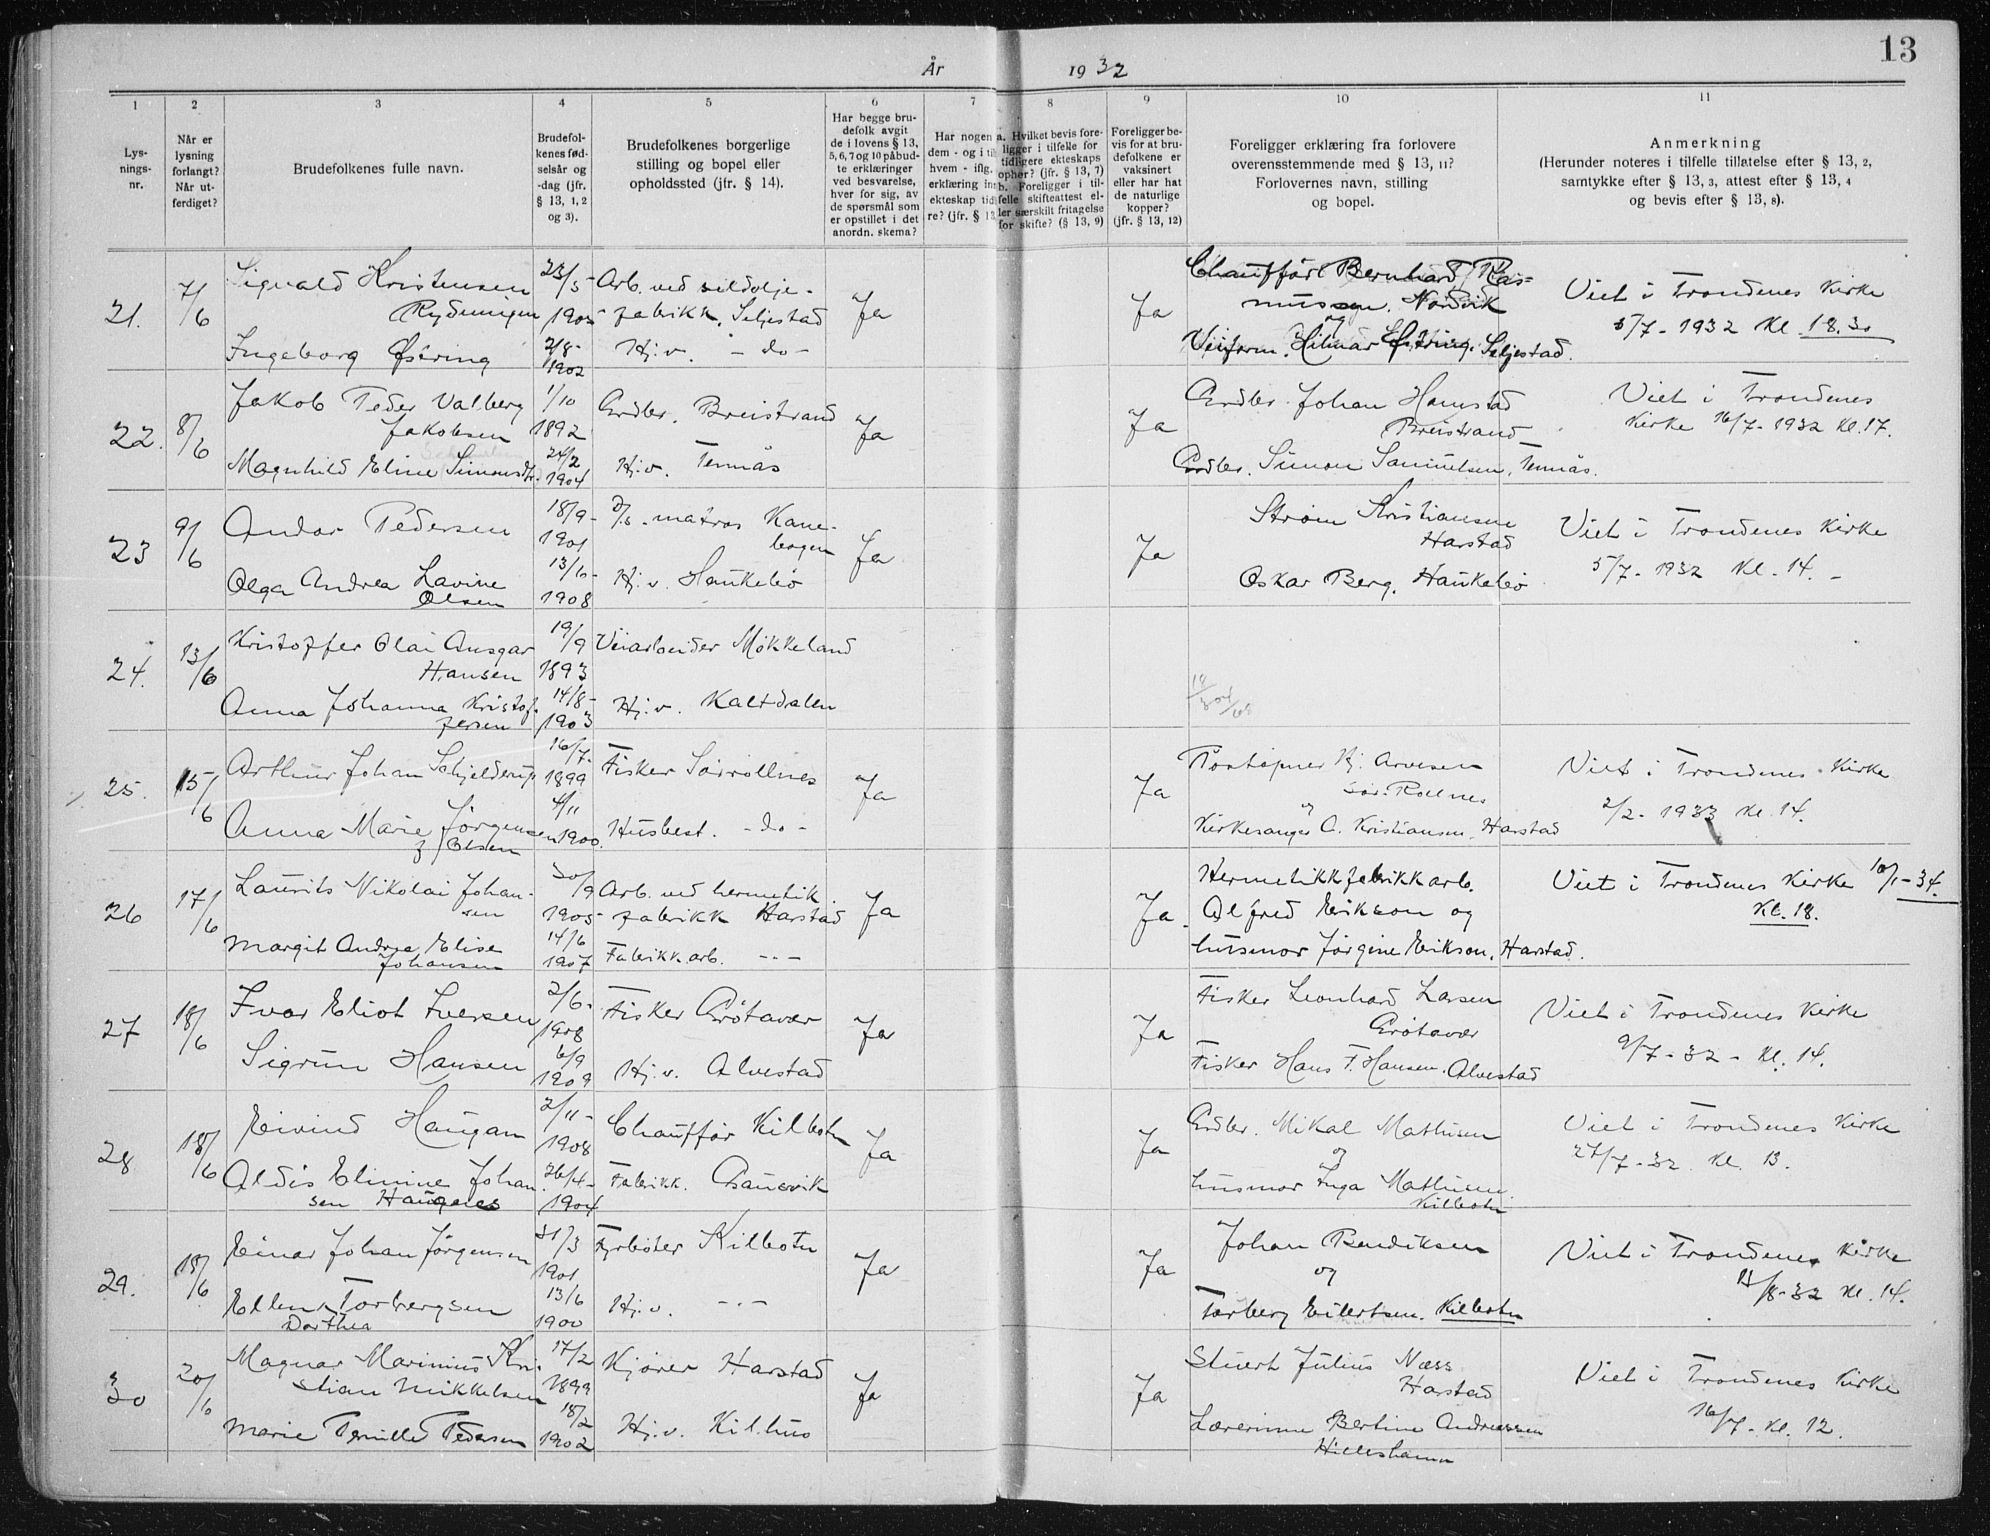 13
År 1932
1 2 3 4 5 6 7 8 9 10 11
Lys-
nings-
nr.
Når er
lysning
forlangt?
Når ut-
ferdiget?
Brudefolkenes fulle navn.
Brudefol-
kenes fød-
selsår og
-dag (jfr.
§ 13, 1, 2
og 3).
Brudefolkenes borgerlige
stilling og bopel eller
opholdssted (jfr. § 14).
Har begge bru-
defolk avgit
de i lovens § 13,
5, 6, 7 og 10 påbud-
te erklæringer
ved besvarelse,
hver for sig, av
de spørsmål som
er opstillet i det
anordn. skema?
Har nogen a
dem - og i til
hvem - iflg.
erklæring in
ekteskap tid
re? (jfr. § 13
a. Hvilket bevis fore-
ligger i tilfelle for
tidligere ekteskaps
ophør? (jfr. § 13, 7)
b. Foreligger i til-
felle skifteattest el-
ler særskilt fritagelse
for skifte? (§ 13, 9)
Foreligger be-
vis for at bru-
defolkene er
vaksinert
eller har hat
de naturlige
kopper?
(jfr. § 13, 12)
Foreligger erklæring fra forlovere
overensstemmende med § 13, 11?
Forlovernes navn, stilling
og bopel.
Anmerkning
(Herunder noteres i tilfelle tillatelse efter § 13, 2,
samtykke efter § 13, 3, attest efter § 13, 4
og bevis efter § 13, 8).
21. 7/6 Sigvald Kristensen 23/5-1905 Arb. ved sildolje-
fabrikk, Seljestad Ja Ja
Ingeborg Østring 2/8-1902 Hj.v. - do -
Chauffør Bernhard Ras-
mussen. Nordvik
og
Veiform. Hilmar Østring. Seljestad.
Viet i Trondenes Kirke
5/7-1932 Kl. 18.30
22. 8/6 Jakob Peder Valberg
Jakobsen 1/10 1892 Grdbr. Breistrand Ja Ja
Magnhild Eline Simonsdtr. 24/2 1904 Hj.v. Tennås
Grdbr. Johan Hamstad
Breistrand
Grdbr. Simon Samuelsen, Tennås.
Viet i Trondenes
Kirke 16/7-1932 Kl. 17.
23 9/6 Andor Pedersen 18/9-1901 matros Kane-
bogen Ja Ja
Olga Andrea Lavine
Olsen 13/10-1908 Hj.v. Haukebø
Strøm Kristiansen
Harstad
Oskar Berg. Haukebø
Viet i Trondenes Kirke
5/7-1932 Kl. 14. -
24. 13/6 Kristoffer Olai Ansgar
Hansen 19/9 1893 Veiarbeider Møkkeland
Anna Johanna Kristof-
fersen 14/8-1903 Hj.v. Kaltdalen
25. 15/6 Arthur Johan Schjelderup 16/7-1899 Fisker Sørrollnes Ja Ja
Anna Marie Jørgensen
f. Olsen 4/11 1900. Husbest. - do -
Postopner Kj. Arvesen
Sør-Rollnes
og
Kirkesanger A. Kristiansen, Harstad
Viet i Trondenes Kirke
2/2-1933 Kl. 14.
26 17/6 Laurits Nikolai Johan-
sen 30/9 1905- Arb. ved hermetik.
fabrikk Harstad Ja Ja
Margit Andrea Elise
Johansen 14/6 1907 Fabrikk arb. - - -
Hermetikkfabrikkarb.
Alfred Erikson og
husmor Jørgine Erikson, Harstad.
Viet i Trondenes Kirke 10/1-34.
Kl. 18.
27 18/6 Ivar Eliot Iversen 2/6-1908 Fisker Grøtavær Ja Ja
Sigrun Hansen 6/9 1909 Hj.v. Alvestad
Fisker Leonhard Larsen
Grøtavær
Fisker Hans F. Hansen, Alvestad
Viet i Trondenes Kirke
9/7-32 - Kl. 14.
28 18/6 Eivind Haugan 2/11-1908 Chauffør Kilbotn Ja Ja
Aldis Elimine Johan-
sen Haugenes 26/4-1904 Fabrikk. Gansvik
Grdbr. Mikal Mathisen
og
husmor Inga Mathisen
Kilbotn
Viet i Trondenes Kirke
27/7-32. Kl. 13.
29. 18/6 Einar Johan Jørgensen 31/3 1901 Fyrbøter Kilbotn Ja Ja
Ellen Torbergsen
Dorthea 13/6 1900 Hj.v. - - -
Johan Bendiksen
og
Torberg Eilertsen. Kilbotn
Viet i Trondenes Kirke
/8-32 Kl. 14.
30 20/6 Magnar Marinius Kri-
stian Mikkelsen 17/2 1899 Kjører Harstad Ja Ja
Marie Pernille Pedersen 18/2 1902 Hj.v. Kilhus
Stuert Julius Næss
Harstad
Lærerinne Bertine Andreassen
Hilleshamn
Viet i Trondenes Kirke
16/7- Kl. 12.